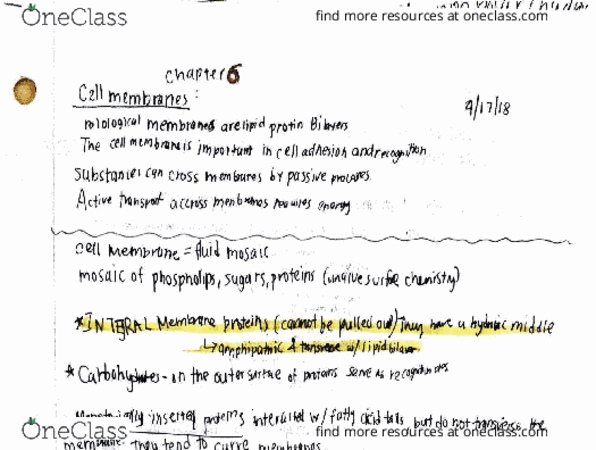 OneClass
find more resources at oneclass.com
Chapter 6
Cell membranes:
4/17/18
membranes are lipid protin Bilayers
The cell membrane is important in cell adhesion and recognition
Substances can cross membranes by passive
Active transport accross membranes requires energy
cell membrane = fluid mosaic
mosaic of phospholips, sugars, proteins (unqive surface chemistry)
*INTEGRAL Membrane proteins (cannot be pulled out) They have a middle
↳ amphipathic & w/ lipid bilayer
*Carbohydrates - on the outer surface of proteins serve as recognition sites
inserted proteins w/ fatty acid tails but do not transverse the
OneClass
find more resources at oneclass.com
membrane. They tend to curve membranes.